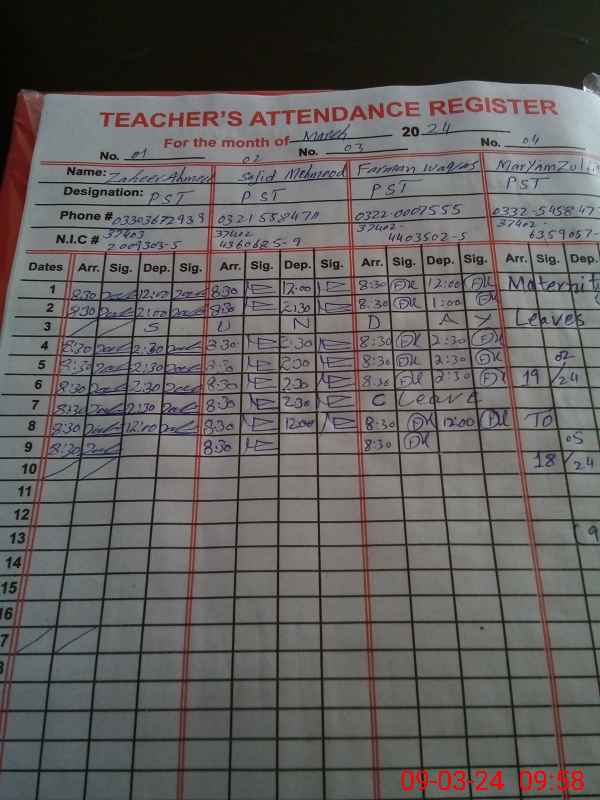 TEACHER'S ATTENDANCE REGISTER
For the month of March 2024
No. 01 02 No. 03 No. 04
Name: Zaheer Ahmed Sajid Mehmood Farman waqas Maryam
Designation: PST PST PST PST
Phone # 03303672939 0322 0007555
N.I.C # 37403 37402 37402- 37402-
2009303-5 4403502-5 6359057-
Dates Arr. Sig. Dep. Sig. Arr. Sig. Dep. Sig. Arr. Sig. Dep. Sig. Arr. Sig. Dep.
1 8:30 12:00 8:30 12:00 8:30 12:00 Maternit
2 8:30 8:30 2:30 8:30 1:00
3 S U N D A Y Leaves
4 8:30 2:30 8:30 2:30 8:30 2:30
5 8:30 2:30 8:30 2:30 8:30 2:30 02
6 8:30 2:30 8:30 2:30 8:30 2:30 19 /24
7 8:30 2:30 8:30 2:30 C Leave
8 8:30 12:00 8:30 12:00 8:30 12:00 To
9 8:30 8:30 8:30 05
10 18 /24
11
12
13 (9
14
15
16
7
8
09-03-24 09:58